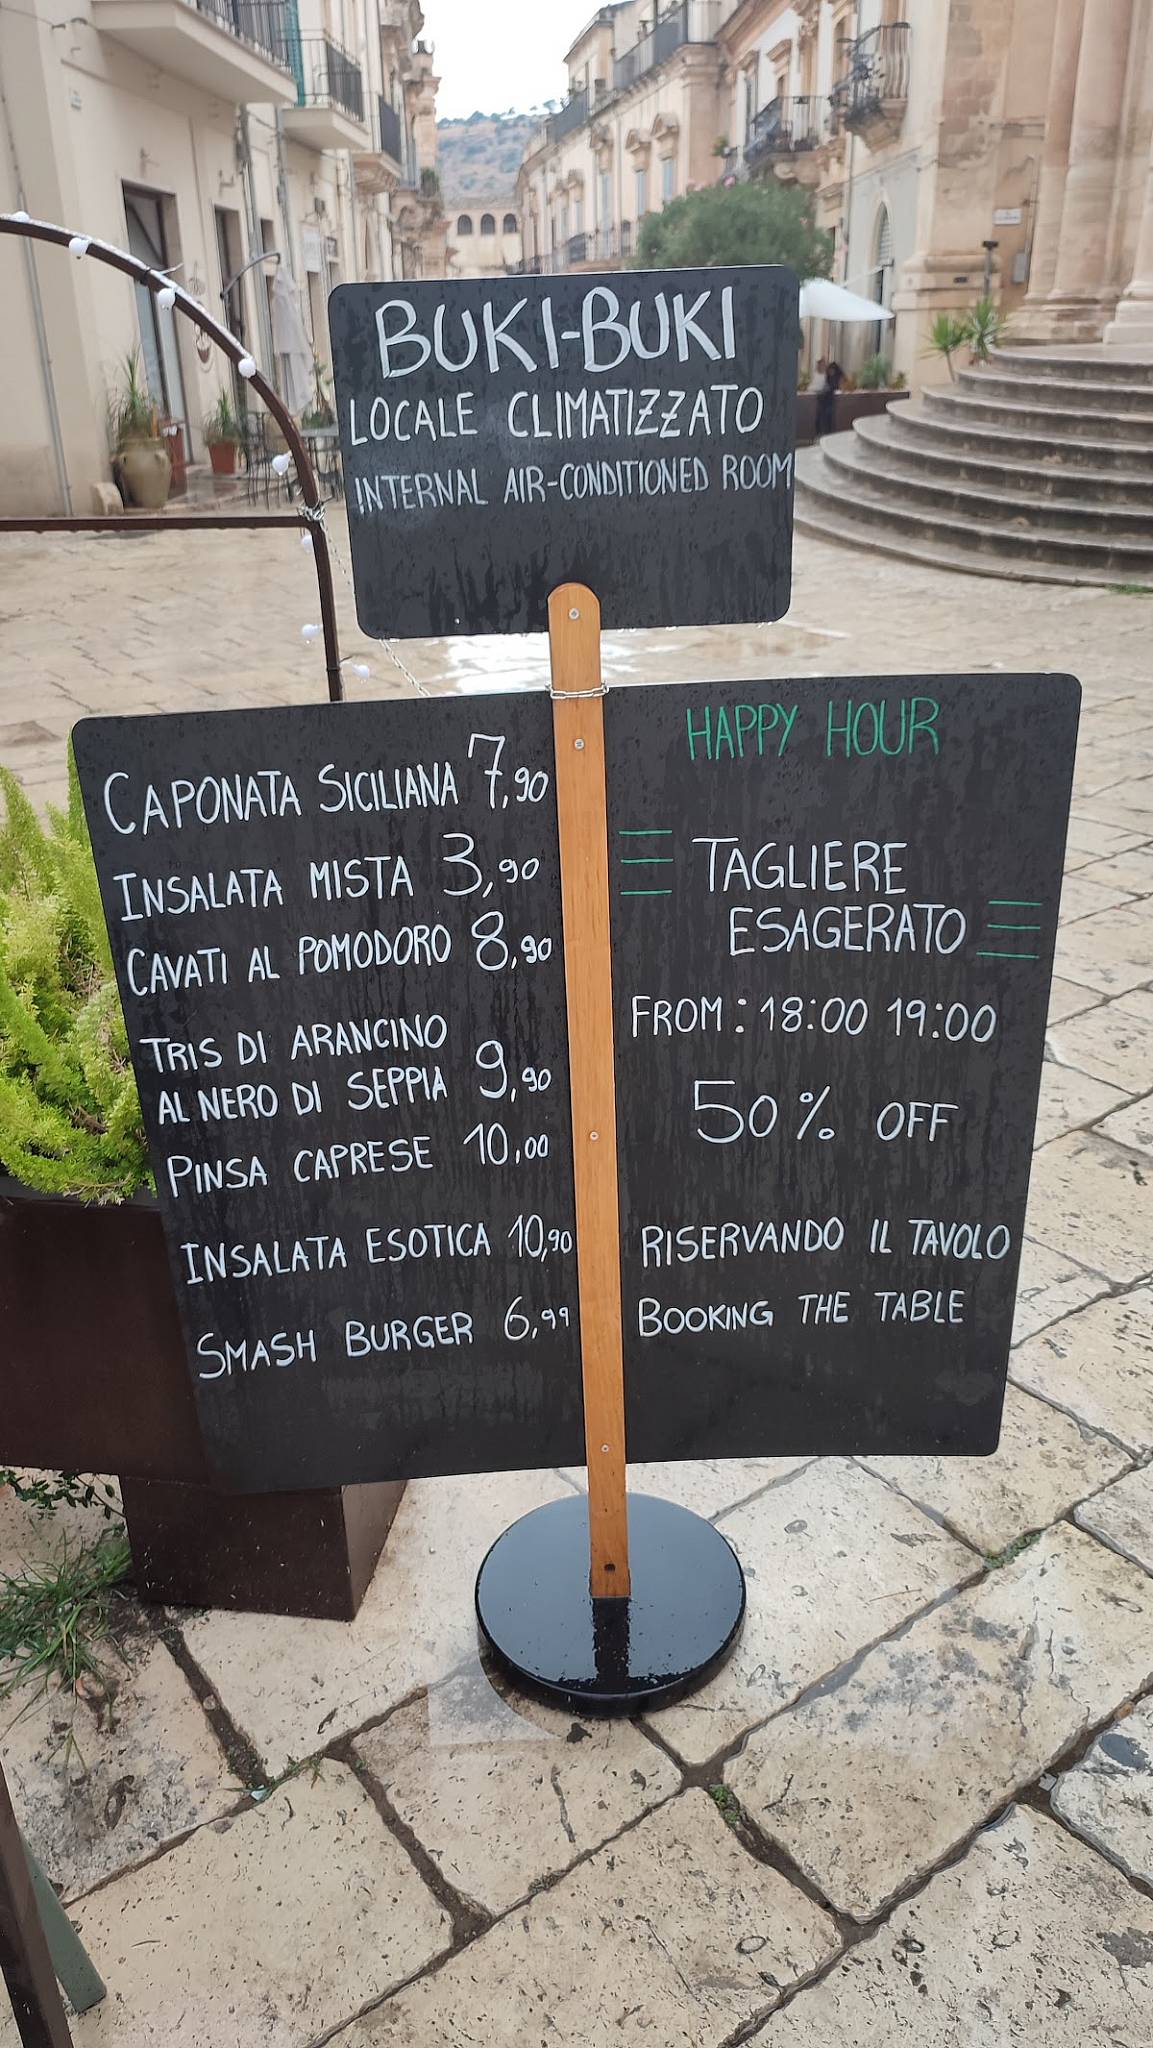 BUKI-BUKI
LOCALE CLIMATIZZATO
INTERNAL AIR-CONDITIONED ROOM
CAPONATA SICILIANA 7,90
INSALATA MISTA 3,90
CAVATI AL POMODORO 8,90
TRIS DI ARANCINO
AL NERO DI SEPPIA 9,90
PINSA CAPRESE 10,00
INSALATA ESOTICA 10,90
SMASH BURGER 6,99
HAPPY HOUR
TAGLIERE
ESAGERATO
FROM: 18:00 19:00
50% OFF
RISERVANDO IL TAVOLO
BOOKING THE TABLE